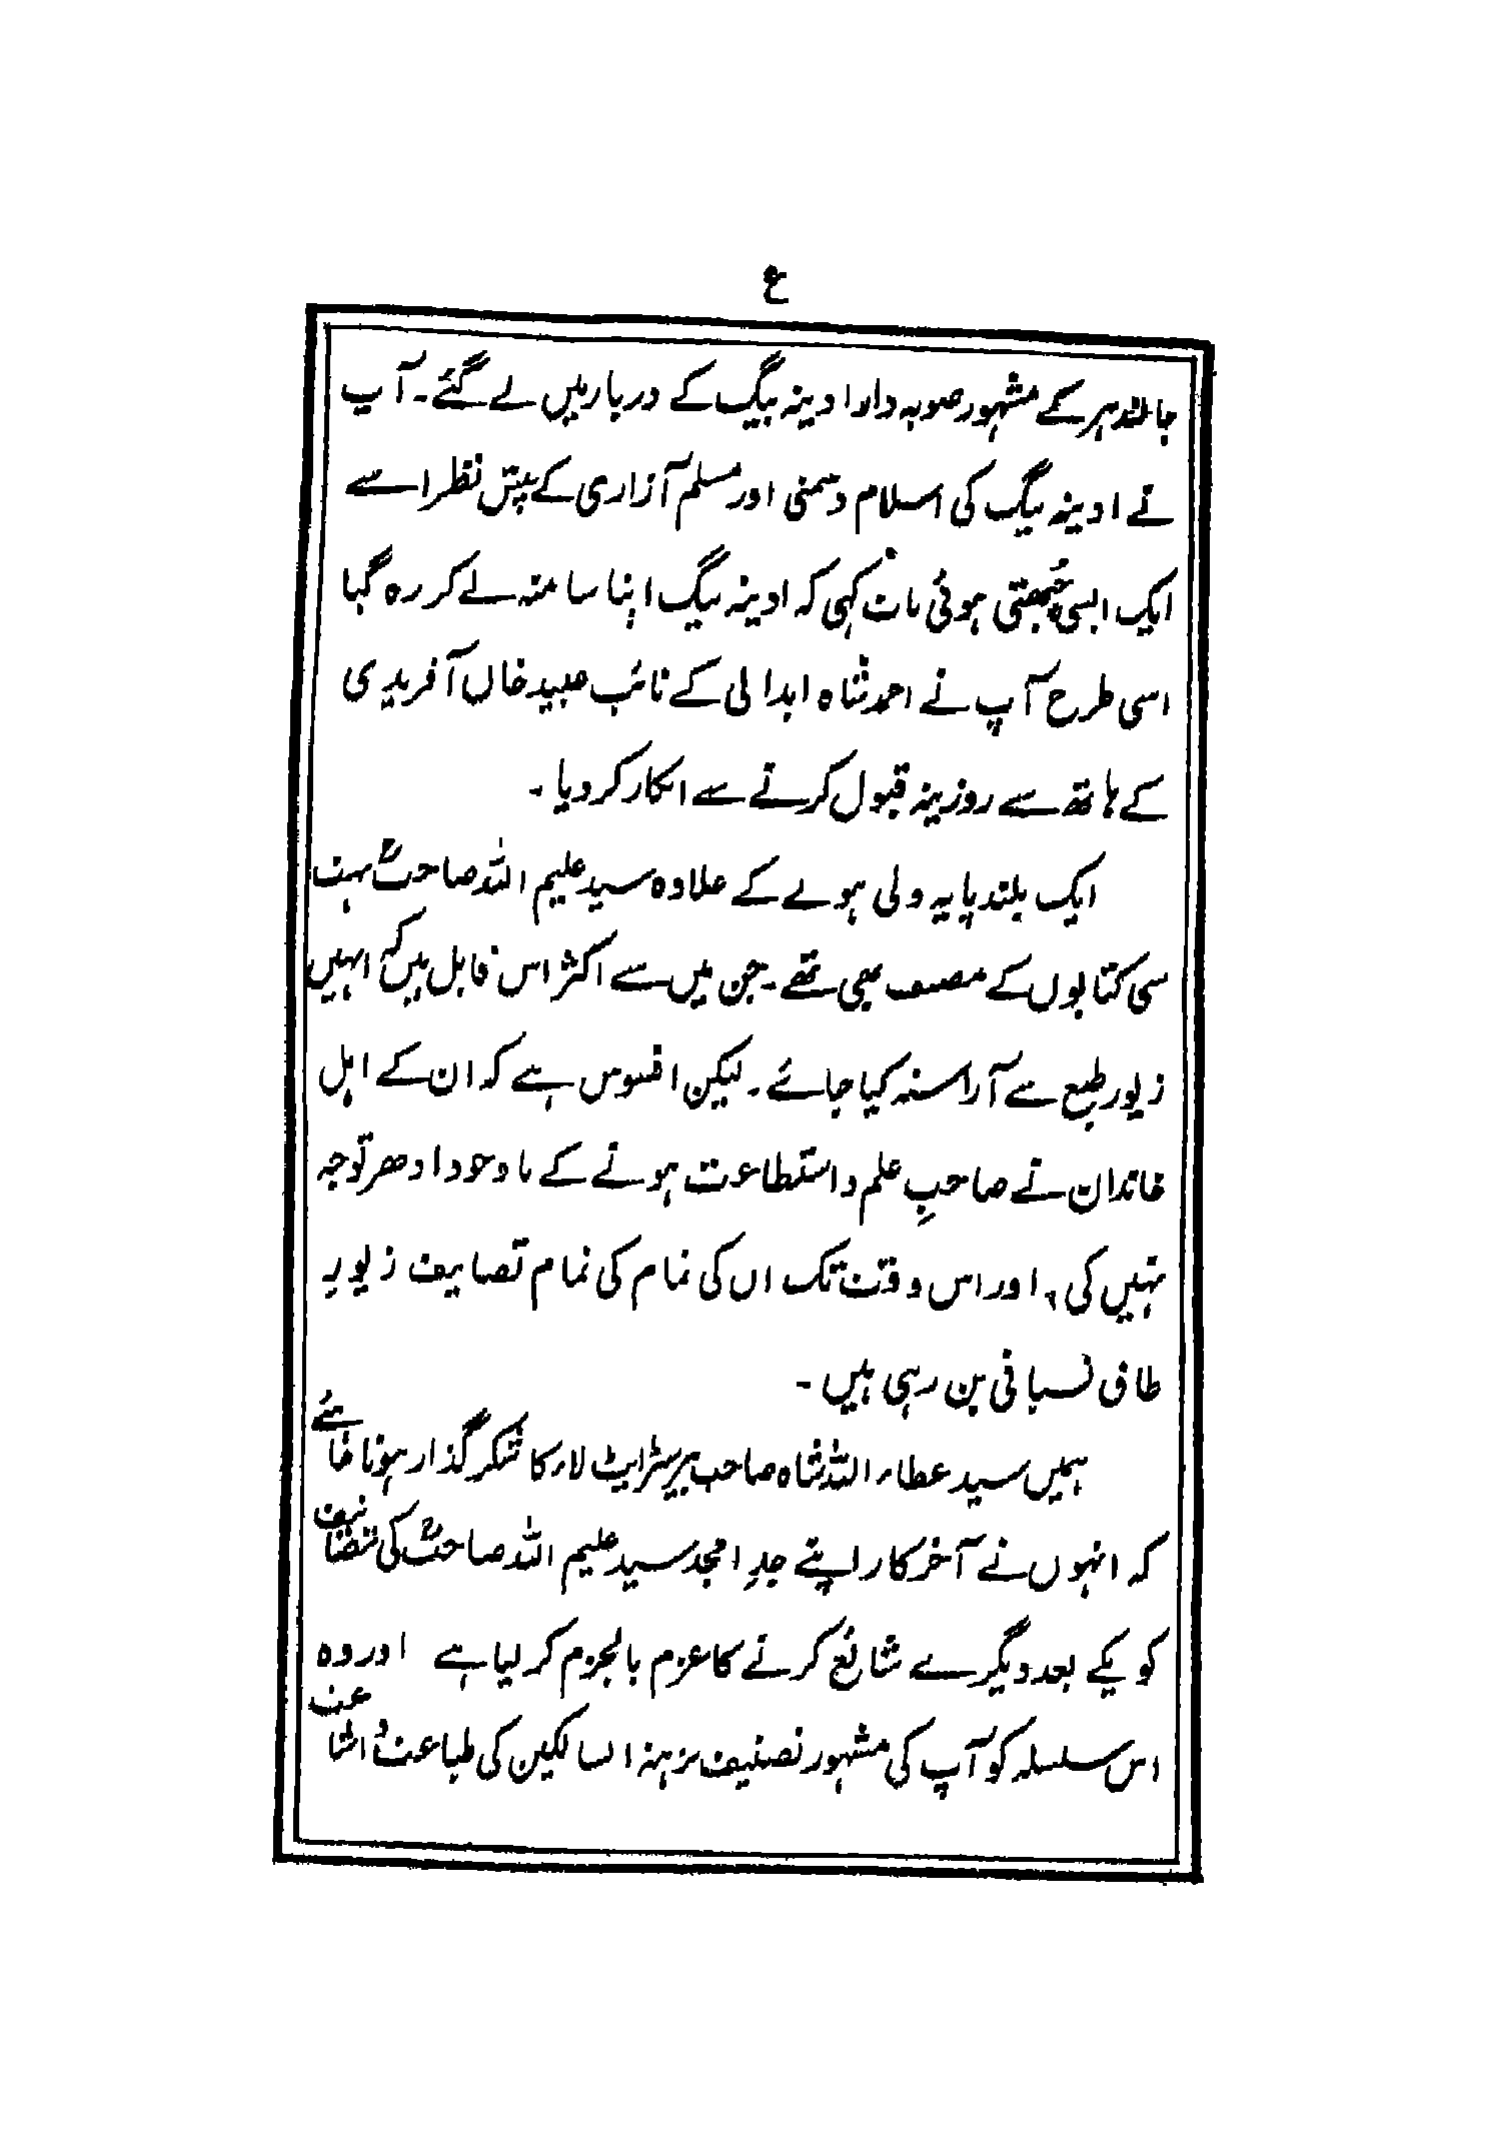 ع
جالندہر کے مشہور صوبہ دار ادینہ بیگ کے دربار میں لے گئے۔ آپ
نے ادینہ بیگ کی اسلام دشمنی اور مسلم آزاری کے پیش نظر اسے
ایک ایسی چُبھتی ہوئی بات کہی کہ ادینہ بیگ اپنا سا منہ لے کر رہ گیا
اسی طرح آپ نے احمد شاہ ابدالی کے نائب عبید خاں آفریدی
کے ہاتھ سے روزینہ قبول کرنے سے انکار کر دیا۔
ایک بلند پایہ ولی ہونے کے علاوہ سید علیم اللہ صاحبؒ بہت
سی کتابوں کے مصنف بھی تھے۔ جن میں سے اکثر اس قابل ہیں کہ انہیں
زیور طبع سے آراستہ کیا جائے۔ لیکن افسوس ہے کہ ان کے اہل
خاندان نے صاحبِ علم و استطاعت ہونے کے باوجود ادھر توجہ
نہیں کی، اور اس وقت تک ان کی تمام کی تمام تصانیف زیور
طاق نسیانی بن رہی ہیں۔
ہمیں سید عطاء اللہ شاہ صاحب بیرسٹرایٹ لاء کا شکر گذار ہونا چاہئے
کہ انہوں نے آخر کار اپنے جدِ امجد سید علیم اللہ صاحبؒ کی تصانیف
کو یکے بعد دیگرے شائع کرنے کا عزم بالجزم کر لیا ہے اور وہ
اس سلسلہ کو آپ کی مشہور تصنیف نزہتہ السالکین کی طباعت و اشاعت